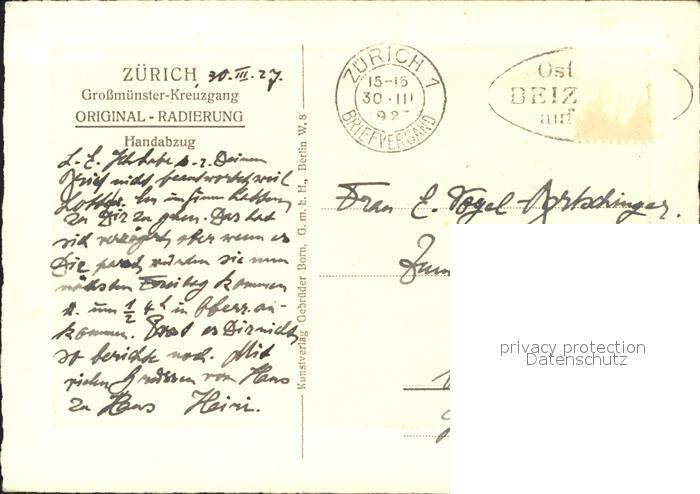 ZÜRICH 30.III.27.
Großmünster-Kreuzgang
ORIGINAL - RADIERUNG
Handabzug
L. E. Ich habe Deinen
Brief nicht beantwortet weil
im Sinn hatten
zu Dir zu gehen. Das hat
sich verzögert aber wenn es
Dir passt würden sie nun
nächsten Freitag kommen
u. um ½ 4 h in Oberr. an-
kommen. Passt es Dir nicht,
so berichte noch. Mit
vielen Grüssen von Haus
zu Haus Heini.
Kunstverlag Gebrüder Born, G. m. b. H., Berlin W. 8
ZÜRICH 1
15-16
30.III
192
BRIEFVERSAND
Ost
BEIZ
auf
Frau E. Vogel-
Zum
privacy protection
Datenschutz